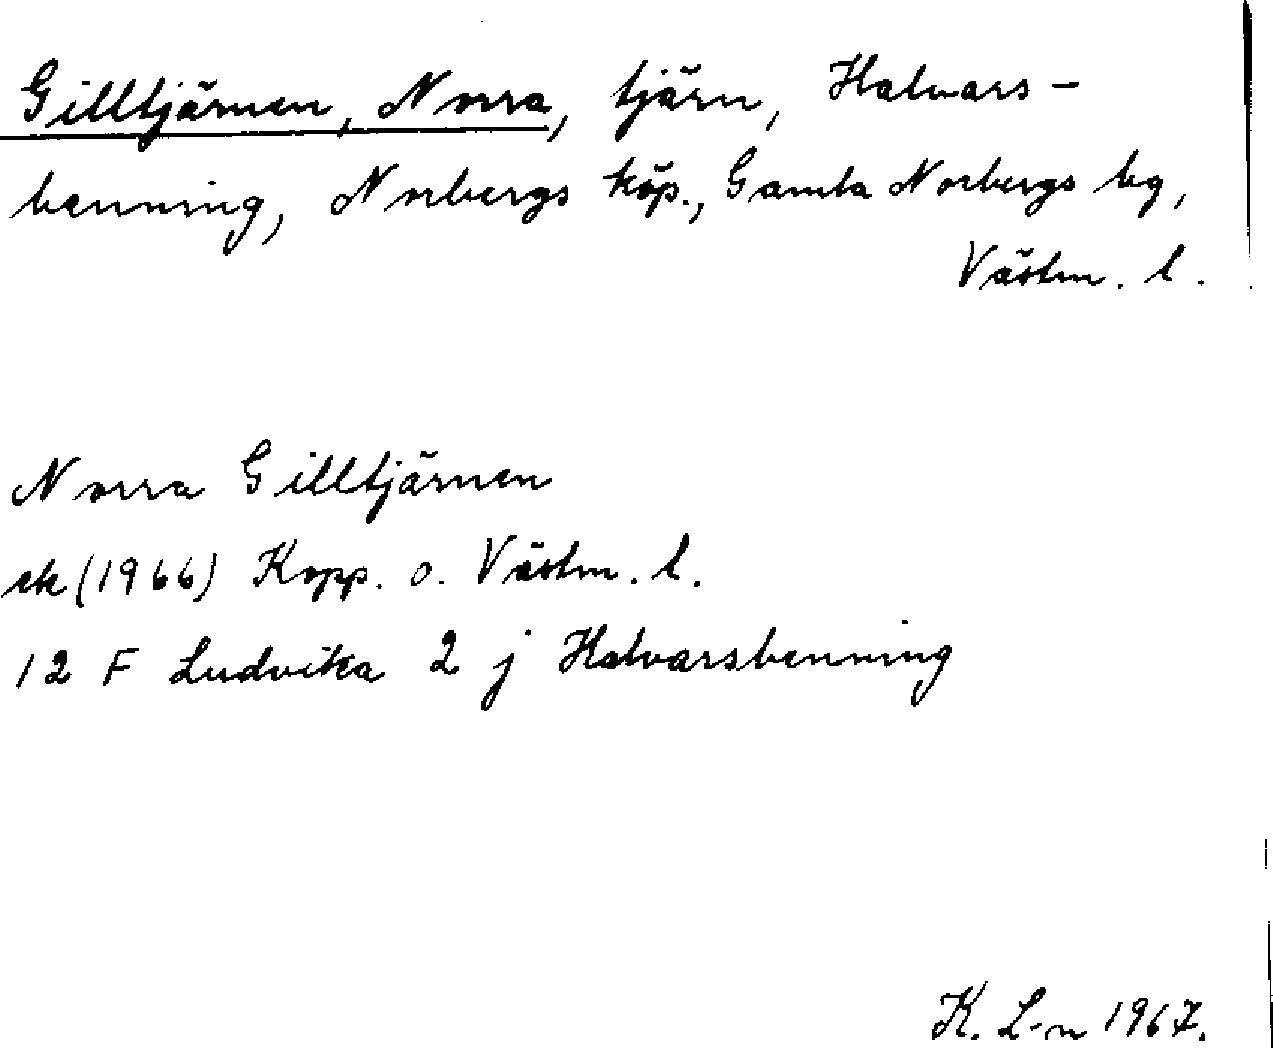 Gilltjärnen, Norra, tjärn, Halvars-
benning, Norbergs köp., Gamla Norbergs bg,
Västm. l.
Norra Gilltjärnen
ek (1966) Kopp. o. Västm. l.
12 F Ludvika 2 j Halvarsbenning
K. L-n 1967.